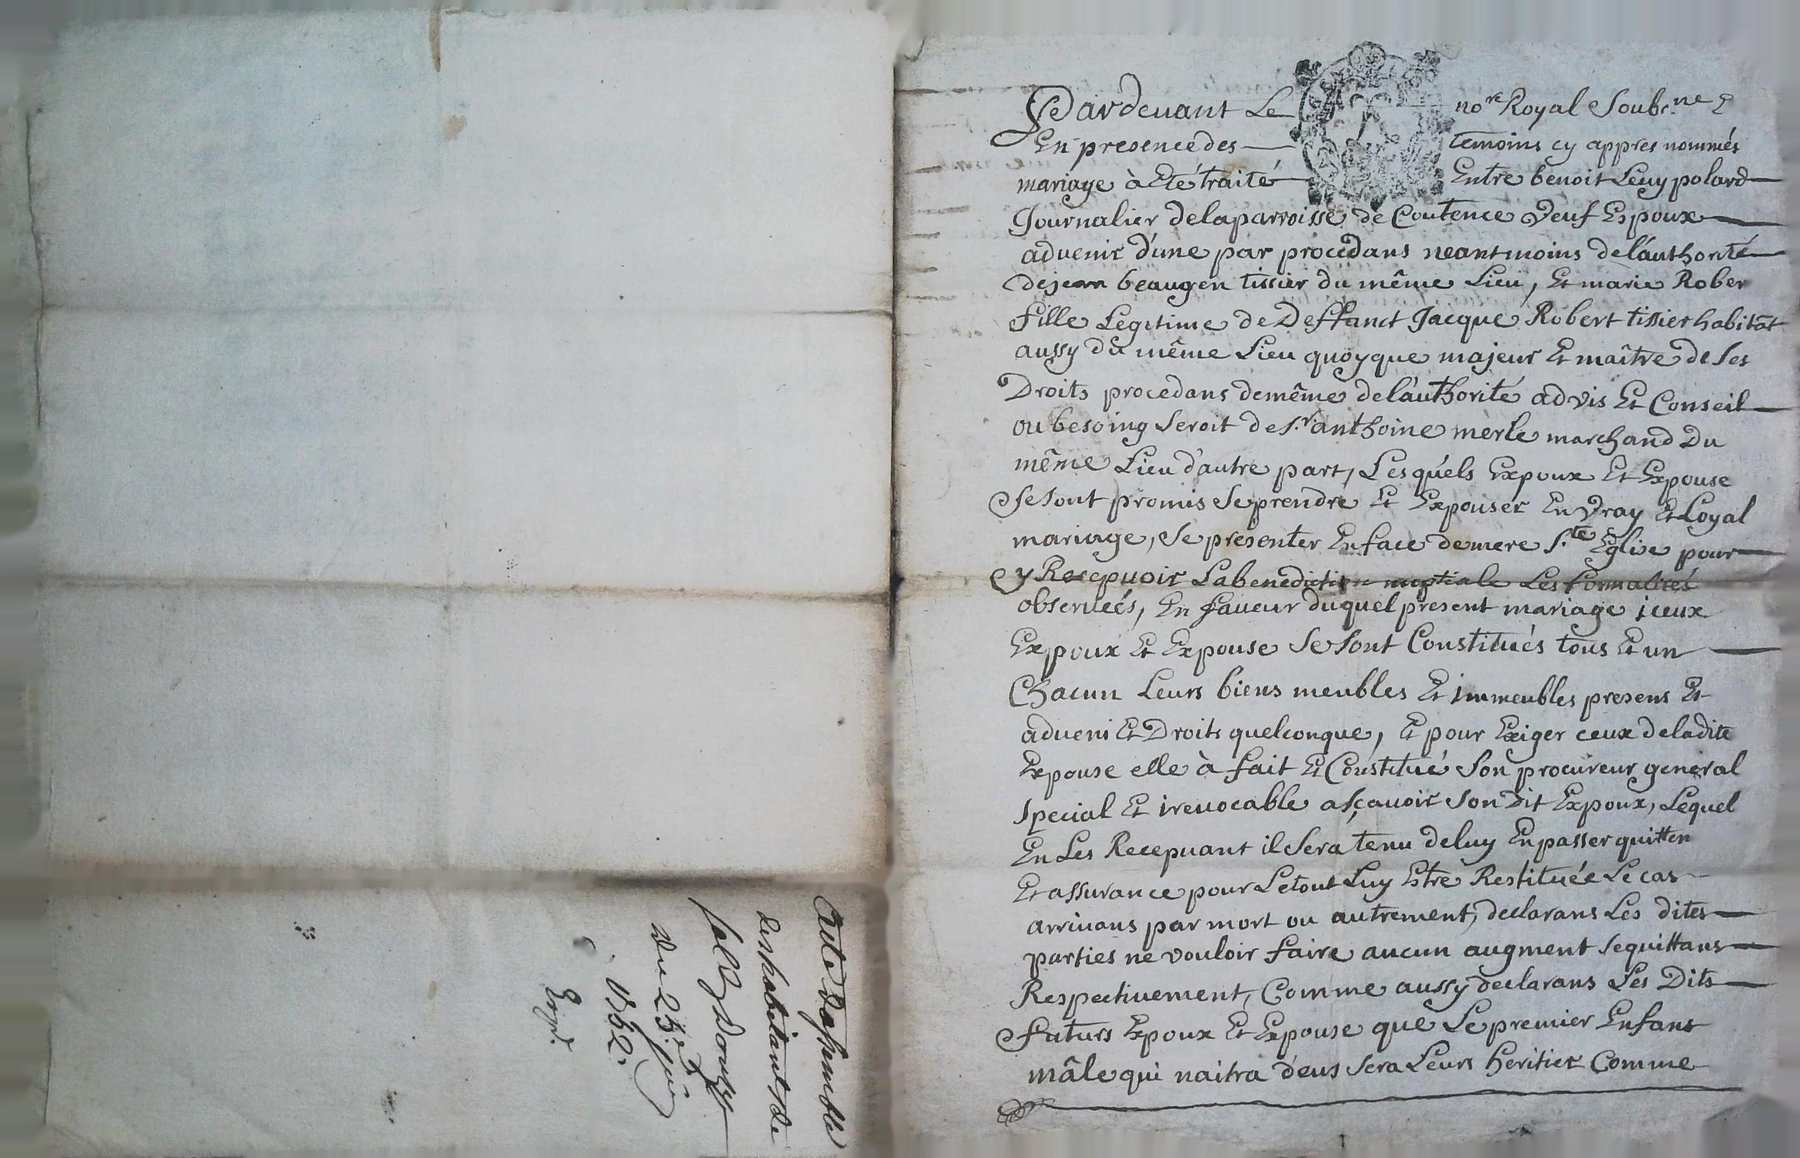 Pardevant Le no.re Royal Soub.ne Et
En presence des temoins cy appres nommés
mariage à Eté traité Entre benoit Leuy polard
Journalier delaparroisse de Coutence Veuf Espoux
advenir d'une par procedans neantmoins del'authorité
dejean beaugen tissier du même Lieu, Et marie Rober
fille Legitime de Deffunct Jacque Robert tissier habitat
aussy du même Lieu quoyque majeur Et maître de Ses
Droits procedans demême del'authorité advis Et Conseil
ou besoing Seroit de S.r anthoine merle marchand Du
même Lieu d'autre part, Lesquels Expoux Et Expouse
Se Sont promis Seprendre Et Expouser En Vray Et Loyal
mariage, Se presenter En face demere S.te Eglise pour
y Recepuoir Labenediction nuptiale Les formalités
observeés, En faveur duquel present mariage iceux
Expoux Et Expouse Se Sont Constitués tous Et un
Chacun Leurs biens meubles Et immeubles presens Et
adveni Et Droits quelconque, Et pour Exiger ceux deladite
Expouse elle à fait Et Constitué Son procureur general
Special Et irevocable asçavoir Son Dit Expoux, Lequel
En Les Recepuant il Sera tenu deluy En passer quitten
Et assurance pour Letout Luy Estre Restituée Le cas
arrivans par mort ou autrement, declarans Les dites
parties ne vouloir faire aucun augment Sequittans
Respectivement, Comme aussy declarans Les Dits
futurs Expoux Et Expouse que Le premier Enfant
mâle qui naitra d'eus Sera Leurs heritier Comme
Acte Dassemblé
des habitants de
du 23e juin